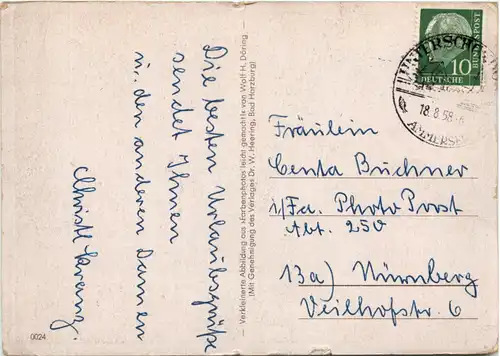 Die besten Urlaubsgrüße
sendet Ihnen
u. den anderen Damen
0024
Verkleinerte Abbildung aus »Farbenphotos leicht gemacht« von Wolf H. Döring
(Mit Genehmigung des Verlages Dr. W. Heering, Bad Harzburg)
10
DEUTSCHE
BUNDESPOST
18.8.58
Fräulein
Centa Buchner
i/Fa. Photo Porst
Abt. 250
13a) Nürnberg
Veilhofstr. 6